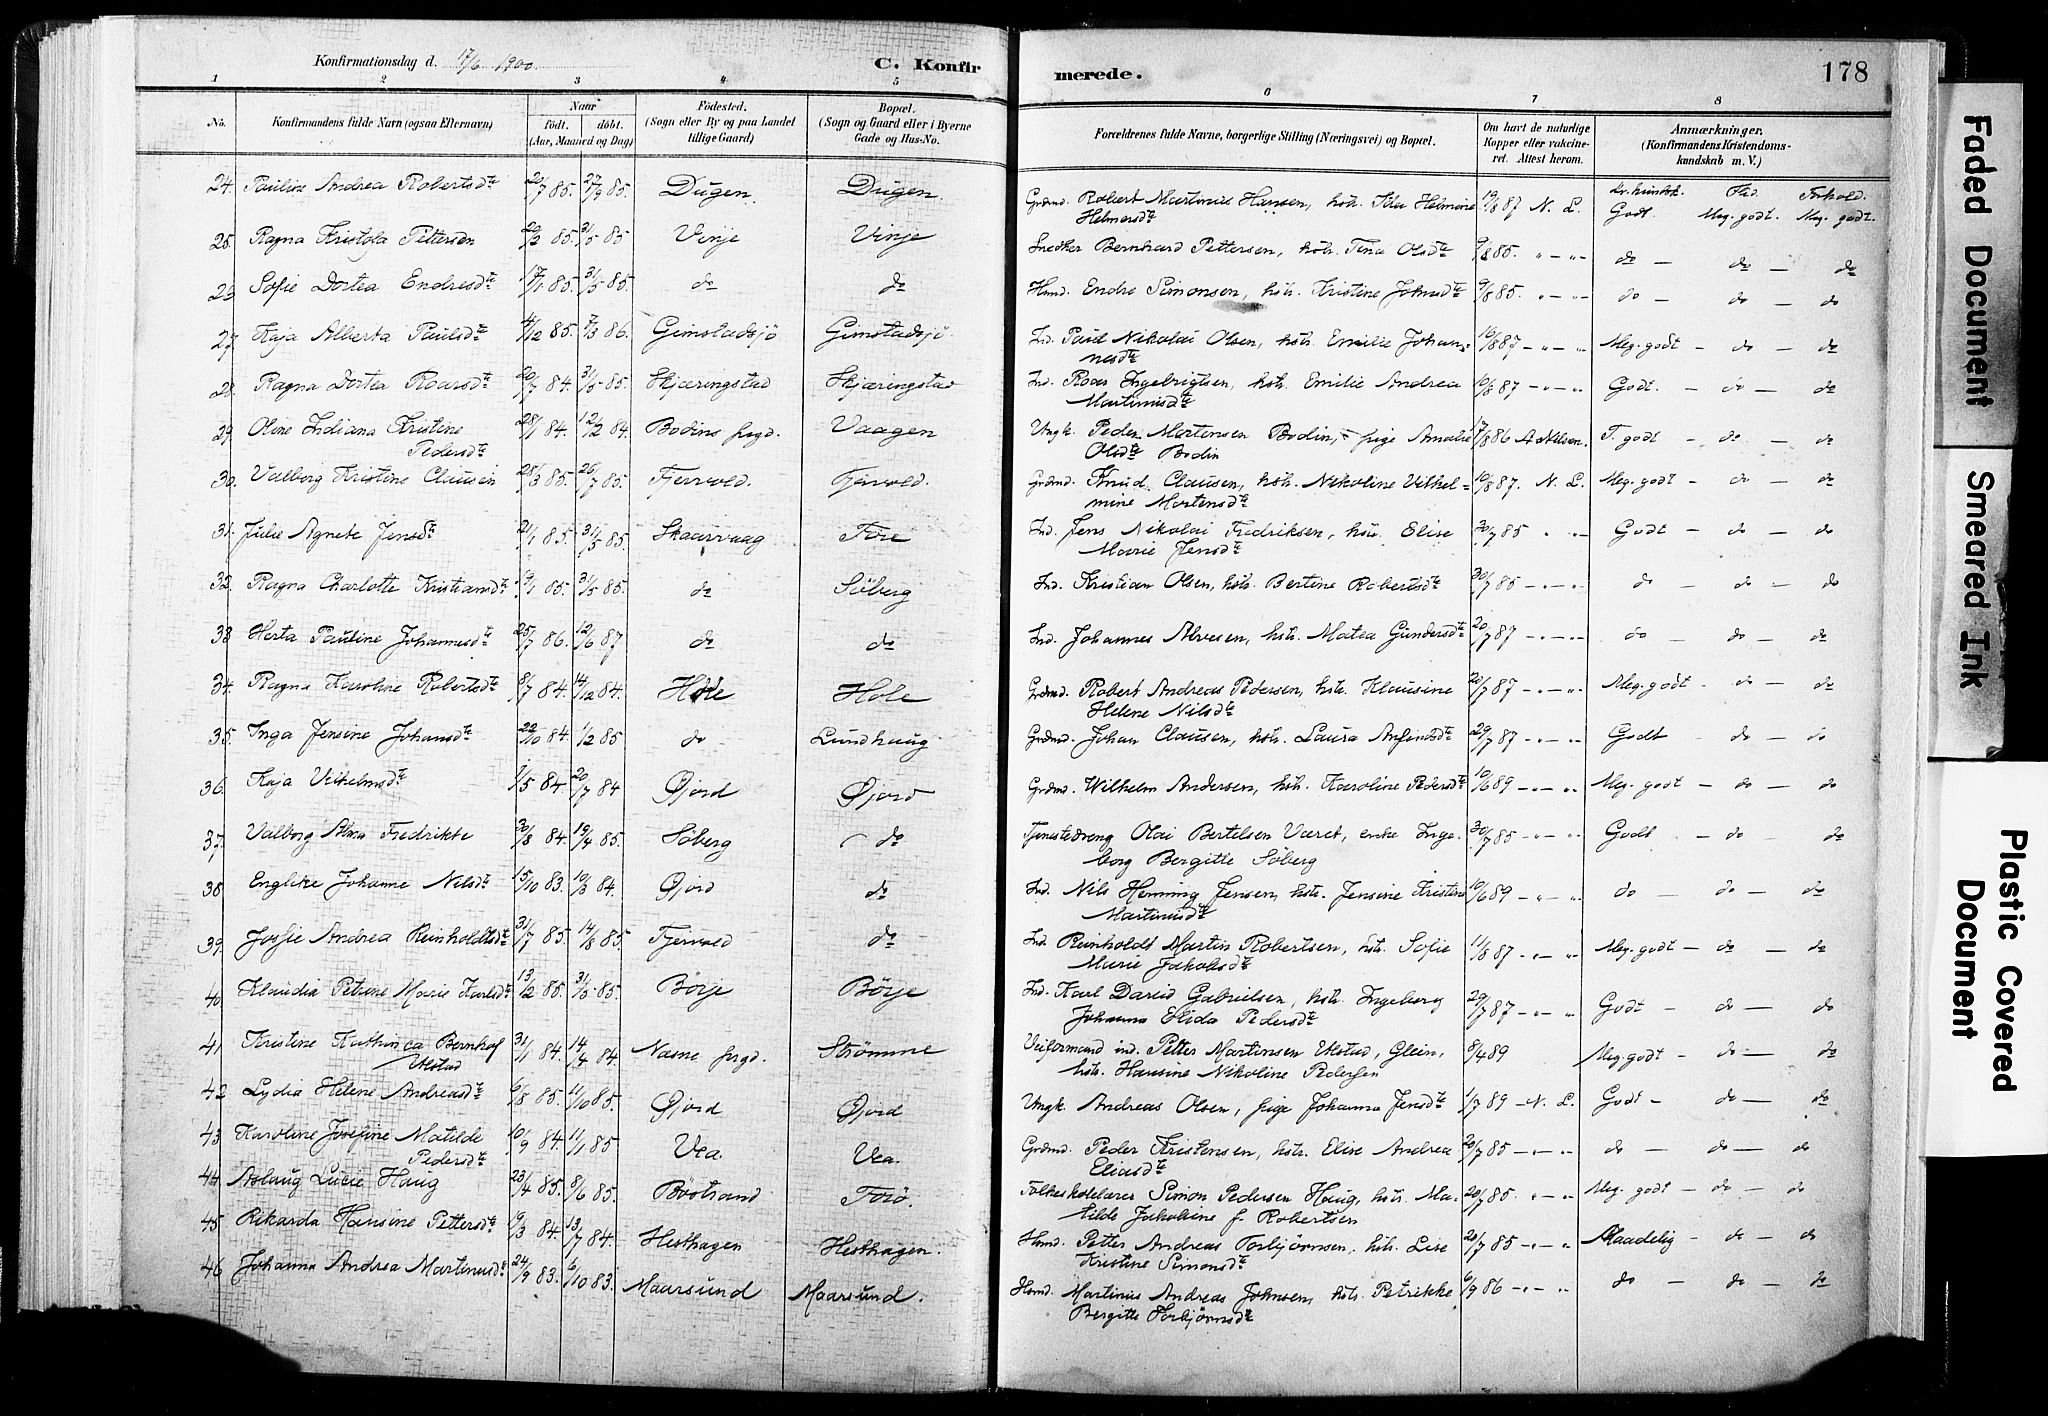 Konfirmationsdag d. 17/6 1900.
C. Konfirmerede.
178
1 2 3 4 5 6 7 8
No.
Konfirmandens fulde Navn (ogsaa Efternavn)
Naar
födt. döbt.
(Aar, Maaned og Dag)
Födested.
(Sogn eller By og paa Landet
tillige Gaard)
Bopæl.
(Sogn og Gaard eller i Byerne
Gade og Hus-No.
Forældrenes fulde Navne, borgerlige Stilling (Næringsvei) og Bopæl.
Om havt de naturlige
Kopper eller vakcine-
ret. Attest herom.
Anmærkninger.
(Konfirmandens Kristendoms-
kundskab m. V.)
Kr. kundsk. Flid. Forhold.
24. Pauline Andrea Robertsdtr 27/9 85. Dugen. Dugen. Grdmd. Robert Martinus Hansen, hstr. Ida Helmine
Helmersdtr 19/8 87 N. L. Godt. Meg. godt. Meg. godt.
25. Ragna Kristofa Pettersen 20/2 85. 31/5 85 Vinje Vinje Snedker Bernhard Pettersen, hstr. Tina Olsdtr 9/8 85. " - " do - do - do
Sofie Dortea Endresdtr 17/1 85. 31/5 85. do do Hsmd. Endre Simonsen, hstr. Kristine Johnsdtr 9/8 85. " - " do - do - do
27. Kaja Alberta Paulsdtr 4/12 85. 7/3 86. Gimstadsjö Gimstadsjö Ind. Paul Nikolai Olsen, hstr. Emilie Johan-
nesdtr 10/8 87 - " - " Meg. godt - do - do
28. Ragna Dortea Roarsdtr 20/7 84. 31/5 85. Skjæringstad Skjæringstad Ind. Roar Ingebrigtsen, hstr. Emilie Andrea
Martinusdtr 10/8 87 - " - " Godt. - do - do
29. Oline Indiana Kristine
Pedersdtr 28/1 84. 12/2 84. Bodins prgd. Vaagen Ungk. Peder Mortensen Bodin, pige Amalie
Olsdtr Bodin 17/8 86 A Nilsen. T. godt - do - do
30. Valborg Kristine Clausen 28/3 85. 26/7 85. Fjervold. Fjærvold. Grdmd. Knud Clausen, hstr. Nikoline Vilhel-
mine Mortensdtr 10/8 87. N. L. Meg. godt - do - do
31. Julie Agnete Jensdtr 21/1 85. 31/5 85. Skaarvaag Fore Ind. Jens Nikolai Fredriksen, hstr. Elise
Marie Jensdtr 30/7 85 " " Godt - do - do
32. Ragna Charlotte Kristiansdtr 19/1 85. 31/5 85. do Söberg Ind. Kristian Olsen, hstr. Bertine Robertsdtr 30/7 85 - " - " do - do - do
33 Herta Pauline Johannesdtr 25/7 86. 12/6 87 do do Ind. Johannes Alvesen, hstr. Matea Gundersdtr 20/7 87 - " - " do - do - do
34. Ragna Karoline Robertsdtr 8/7 84. 14/12 84. Hole Hole Grdmd. Robert Andreas Pedersen, hstr. Klausine
Helene Nilsdtr 20/7 87 - " - " Meg. godt - do - do
35. Inga Jensine Johansdtr 22/10 84. 1/2 85 do Lundhaug Grdmd. Johan Clausen, hstr. Laura Anfinsdtr 29/7 87 - " - " Godt - do - do
36. Kaja Vilhelmsdtr 1/5 84. 20/7 84 Øjord Øjord Grdmd. Wilhelm Andersen, hstr. Karoline Pedersdtr 10/6 89 - " - " Meg. godt - do - do
37. Valborg Alma Fredrikke 30/8 84. 19/4 85. Söberg do Tjenestedreng Olai Bertelsen Været, enke Inge-
borg Bergitte Söberg 30/7 85 - " - " Godt - do do
38 Englike Johanne Nilsdtr 15/10 83. 10/3 84. Øjord do Ind. Nils Henning Jensen, hstr. Jensine Kristine
Martinusdtr 10/6 89 - " - " do - do - do
39. Josfie Andrea Reinholdtsdtr 31/7 85. 14/8 85. Fjervold do Ind. Reinholdt Martin Robertsen, hstr. Sofie
Marie Jakobsdtr 11/8 87 - " - " Meg. godt - do - do
40 Klaudia Petrine Marie Karlsdtr 13/2 85. 31/5 85. Börje Börje Ind. Karl David Gabrielsen, hstr. Ingeborg
Johanna Elida Pedersdtr 29/7 87 - " " Godt - do - do
41 Kristine Kathinca Bernhof
Utstad 31/1 84. 14/4 84. Nasne prgd. Strömme Veiformand ind. Petter Martinsen Utstad, Glein,
hstr. Hansine Nikoline Pedersen 8/4 89 Meg. godt - do - do
42 Lydia Helene Andreasdtr 6/8 85. 11/10 85. Øjord Øjord Ungk. Andreas Olsen, pige Johanna Jensdtr 1/7 89 - N. L. Godt - do - do
43 Karoline Josefine Matilde
Pedersdtr 10/9 84. 11/1 85 Vea. Vea. Grdmd. Peder Kristensen, hstr. Elise Andrea
Eliasdtr 20/7 85 - " - " do - do - do
44 Aslaug Lucie Haug 23/4 85. 8/6 85. Böstrand Forö. Folkeskolelærer Simon Pedersen Haug, hstr. Ma-
tilde Jakobine f. Robertsen 20/7 85. " - " Meg. godt - do - do
45 Rikarda Hansine Pettersdtr 19/3 84. 13/7 84. Hesthagen Hesthagen. Hsmd. Petter Andreas Torbjörnsen, hstr. Lise
Kristine Simonsdtr 20/7 85 - " - " Maadelig - do - do
46 Johanna Andrea Martinusdtr 24/9 83. 6/10 83. Maarsund Maarsund. Hsmd. Martinus Andreas Johnsen, hstr. Petrikke
Bergitte Torbjörnsdtr 6/9 86 - " - " do - do - do
Faded Document
Smeared Ink
Plastic Covered
Document